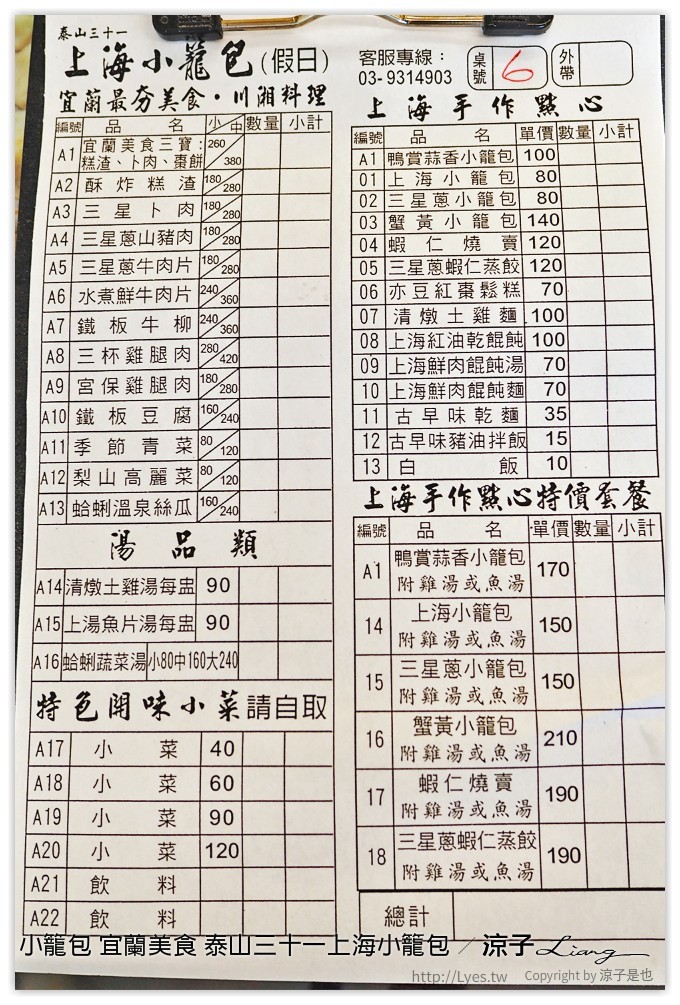 泰山三十一
上海小籠包(假日)
宜蘭最夯美食・川湘料理
編號 品名 小/中 數量 小計
A1 宜蘭美食三寶: 糕渣、卜肉、棗餅 260/380
A2 酥炸糕渣 180/280
A3 三星卜肉 180/280
A4 三星蔥山豬肉 180/280
A5 三星蔥牛肉片 180/280
A6 水煮鮮牛肉片 240/360
A7 鐵板牛柳 240/360
A8 三杯雞腿肉 280/420
A9 宮保雞腿肉 180/280
A10 鐵板豆腐 160/240
A11 季節青菜 80/120
A12 梨山高麗菜 80/120
A13 蛤蜊溫泉絲瓜 160/240
湯品類
A14 清燉土雞湯每盅 90
A15 上湯魚片湯每盅 90
A16 蛤蜊蔬菜湯 小80中160大240
特色開味小菜請自取
A17 小菜 40
A18 小菜 60
A19 小菜 90
A20 小菜 120
A21 飲料
A22 飲料
客服專線:
03-9314903
桌號 6
外帶
上海手作點心
編號 品名 單價 數量 小計
A1 鴨賞蒜香小籠包 100
01 上海小籠包 80
02 三星蔥小籠包 80
03 蟹黃小籠包 140
04 蝦仁燒賣 120
05 三星蔥蝦仁蒸餃 120
06 亦豆紅棗鬆糕 70
07 清燉土雞麵 100
08 上海紅油乾餛飩 100
09 上海鮮肉餛飩湯 70
10 上海鮮肉餛飩麵 70
11 古早味乾麵 35
12 古早味豬油拌飯 15
13 白飯 10
上海手作點心特價套餐
編號 品名 單價 數量 小計
A1 鴨賞蒜香小籠包 170
附雞湯或魚湯
14 上海小籠包 150
附雞湯或魚湯
15 三星蔥小籠包 150
附雞湯或魚湯
16 蟹黃小籠包 210
附雞湯或魚湯
17 蝦仁燒賣 190
附雞湯或魚湯
18 三星蔥蝦仁蒸餃 190
附雞湯或魚湯
總計
小籠包 宜蘭美食 泰山三十一上海小籠包 / 涼子 Liang
http://Lyes.tw Copyright by 涼子是也